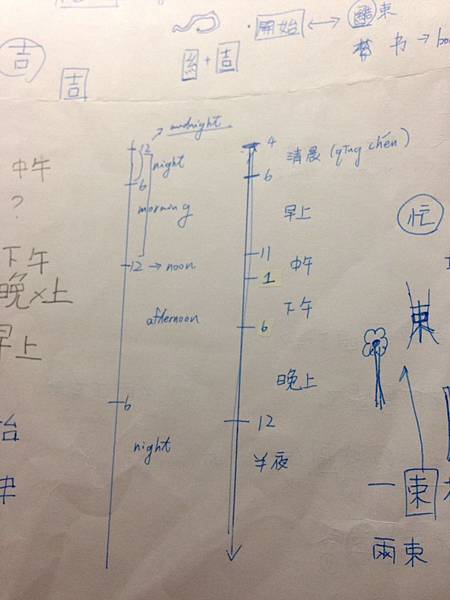 開始
束
吉
吉
糸 + 吉
书 → bo
midnight
12
night
6
morning
12 → noon
afternoon
6
night
4
清晨 (qīng chén)
6
早上
11
中午
1
下午
6
晚上
12
半夜
中午
?
下午
晚上
早上
忙
束
一束
兩束